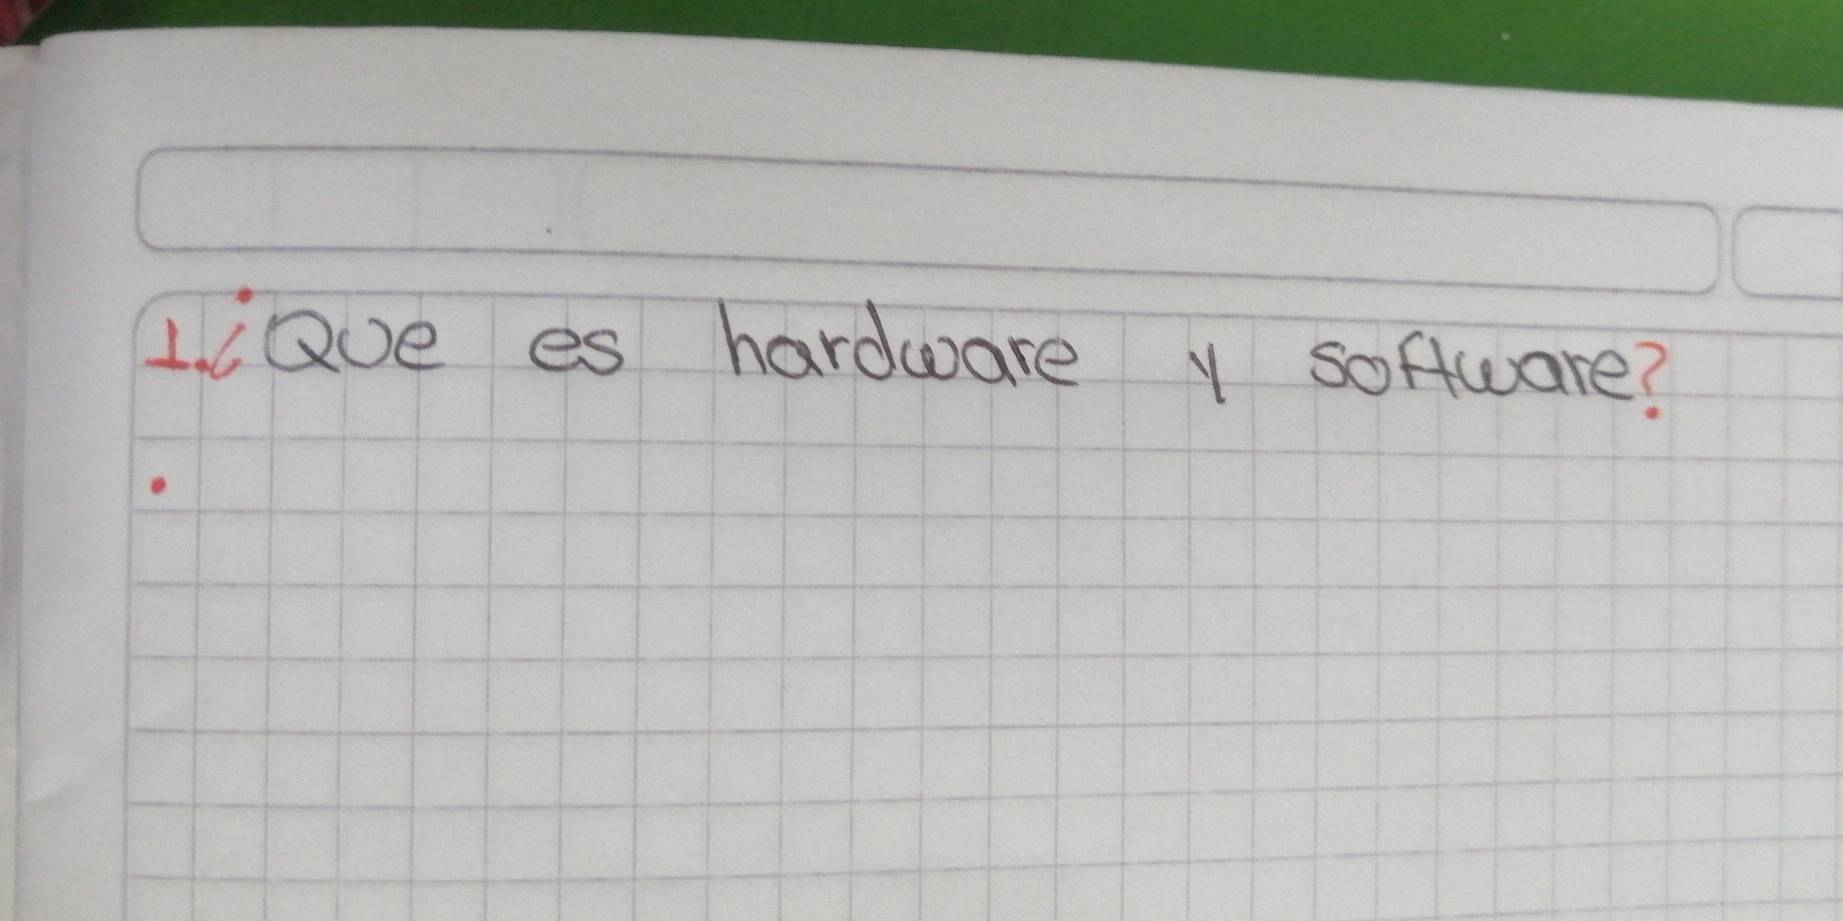 1.¿Que es hardware y software?
.